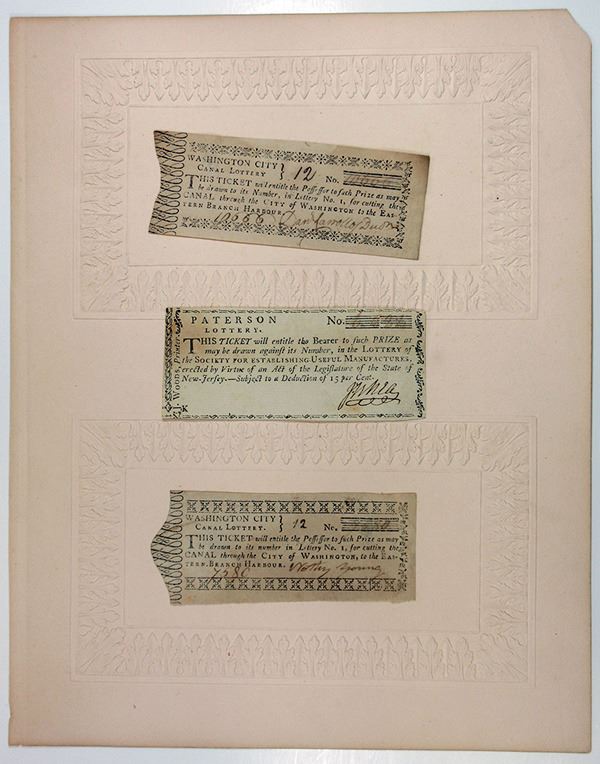 WASHINGTON CITY
CANAL LOTTERY } 12 No.
THIS TICKET will entitle the Possessor to such Prize as may
be drawn to its Number, in Lottery No. 1, for cutting the
CANAL through the CITY OF WASHINGTON to the EAS-
TERN BRANCH HARBOUR.
PATERSON No.
LOTTERY.
THIS TICKET will entitle the Bearer to such PRIZE as
may be drawn against its Number, in the LOTTERY of
the SOCIETY FOR ESTABLISHING USEFUL MANUFACTURES,
erected by Virtue of an Act of the Legislature of the State of
New-Jersey.—Subject to a Deduction of 15 per Cent.
J. WOODS, Printer
K
WASHINGTON CITY
CANAL LOTTERY. } 12 No.
THIS TICKET will entitle the Possessor to such Prize as may
be drawn to its number in Lottery No. 1, for cutting the
CANAL through the CITY OF WASHINGTON, to the EAS-
TERN BRANCH HARBOUR. Notley Young